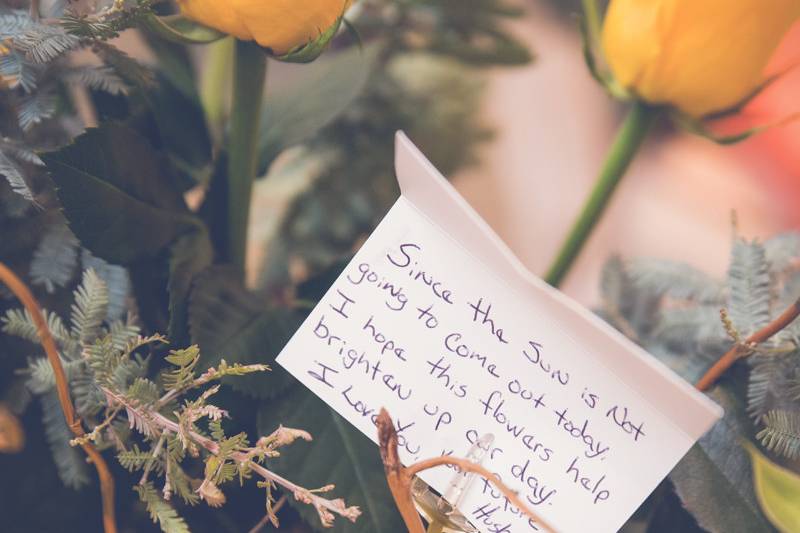 Since the Sun is Not
going to come out today.
I hope this flowers help
brighten up our day.
I Love You, your future
Husb